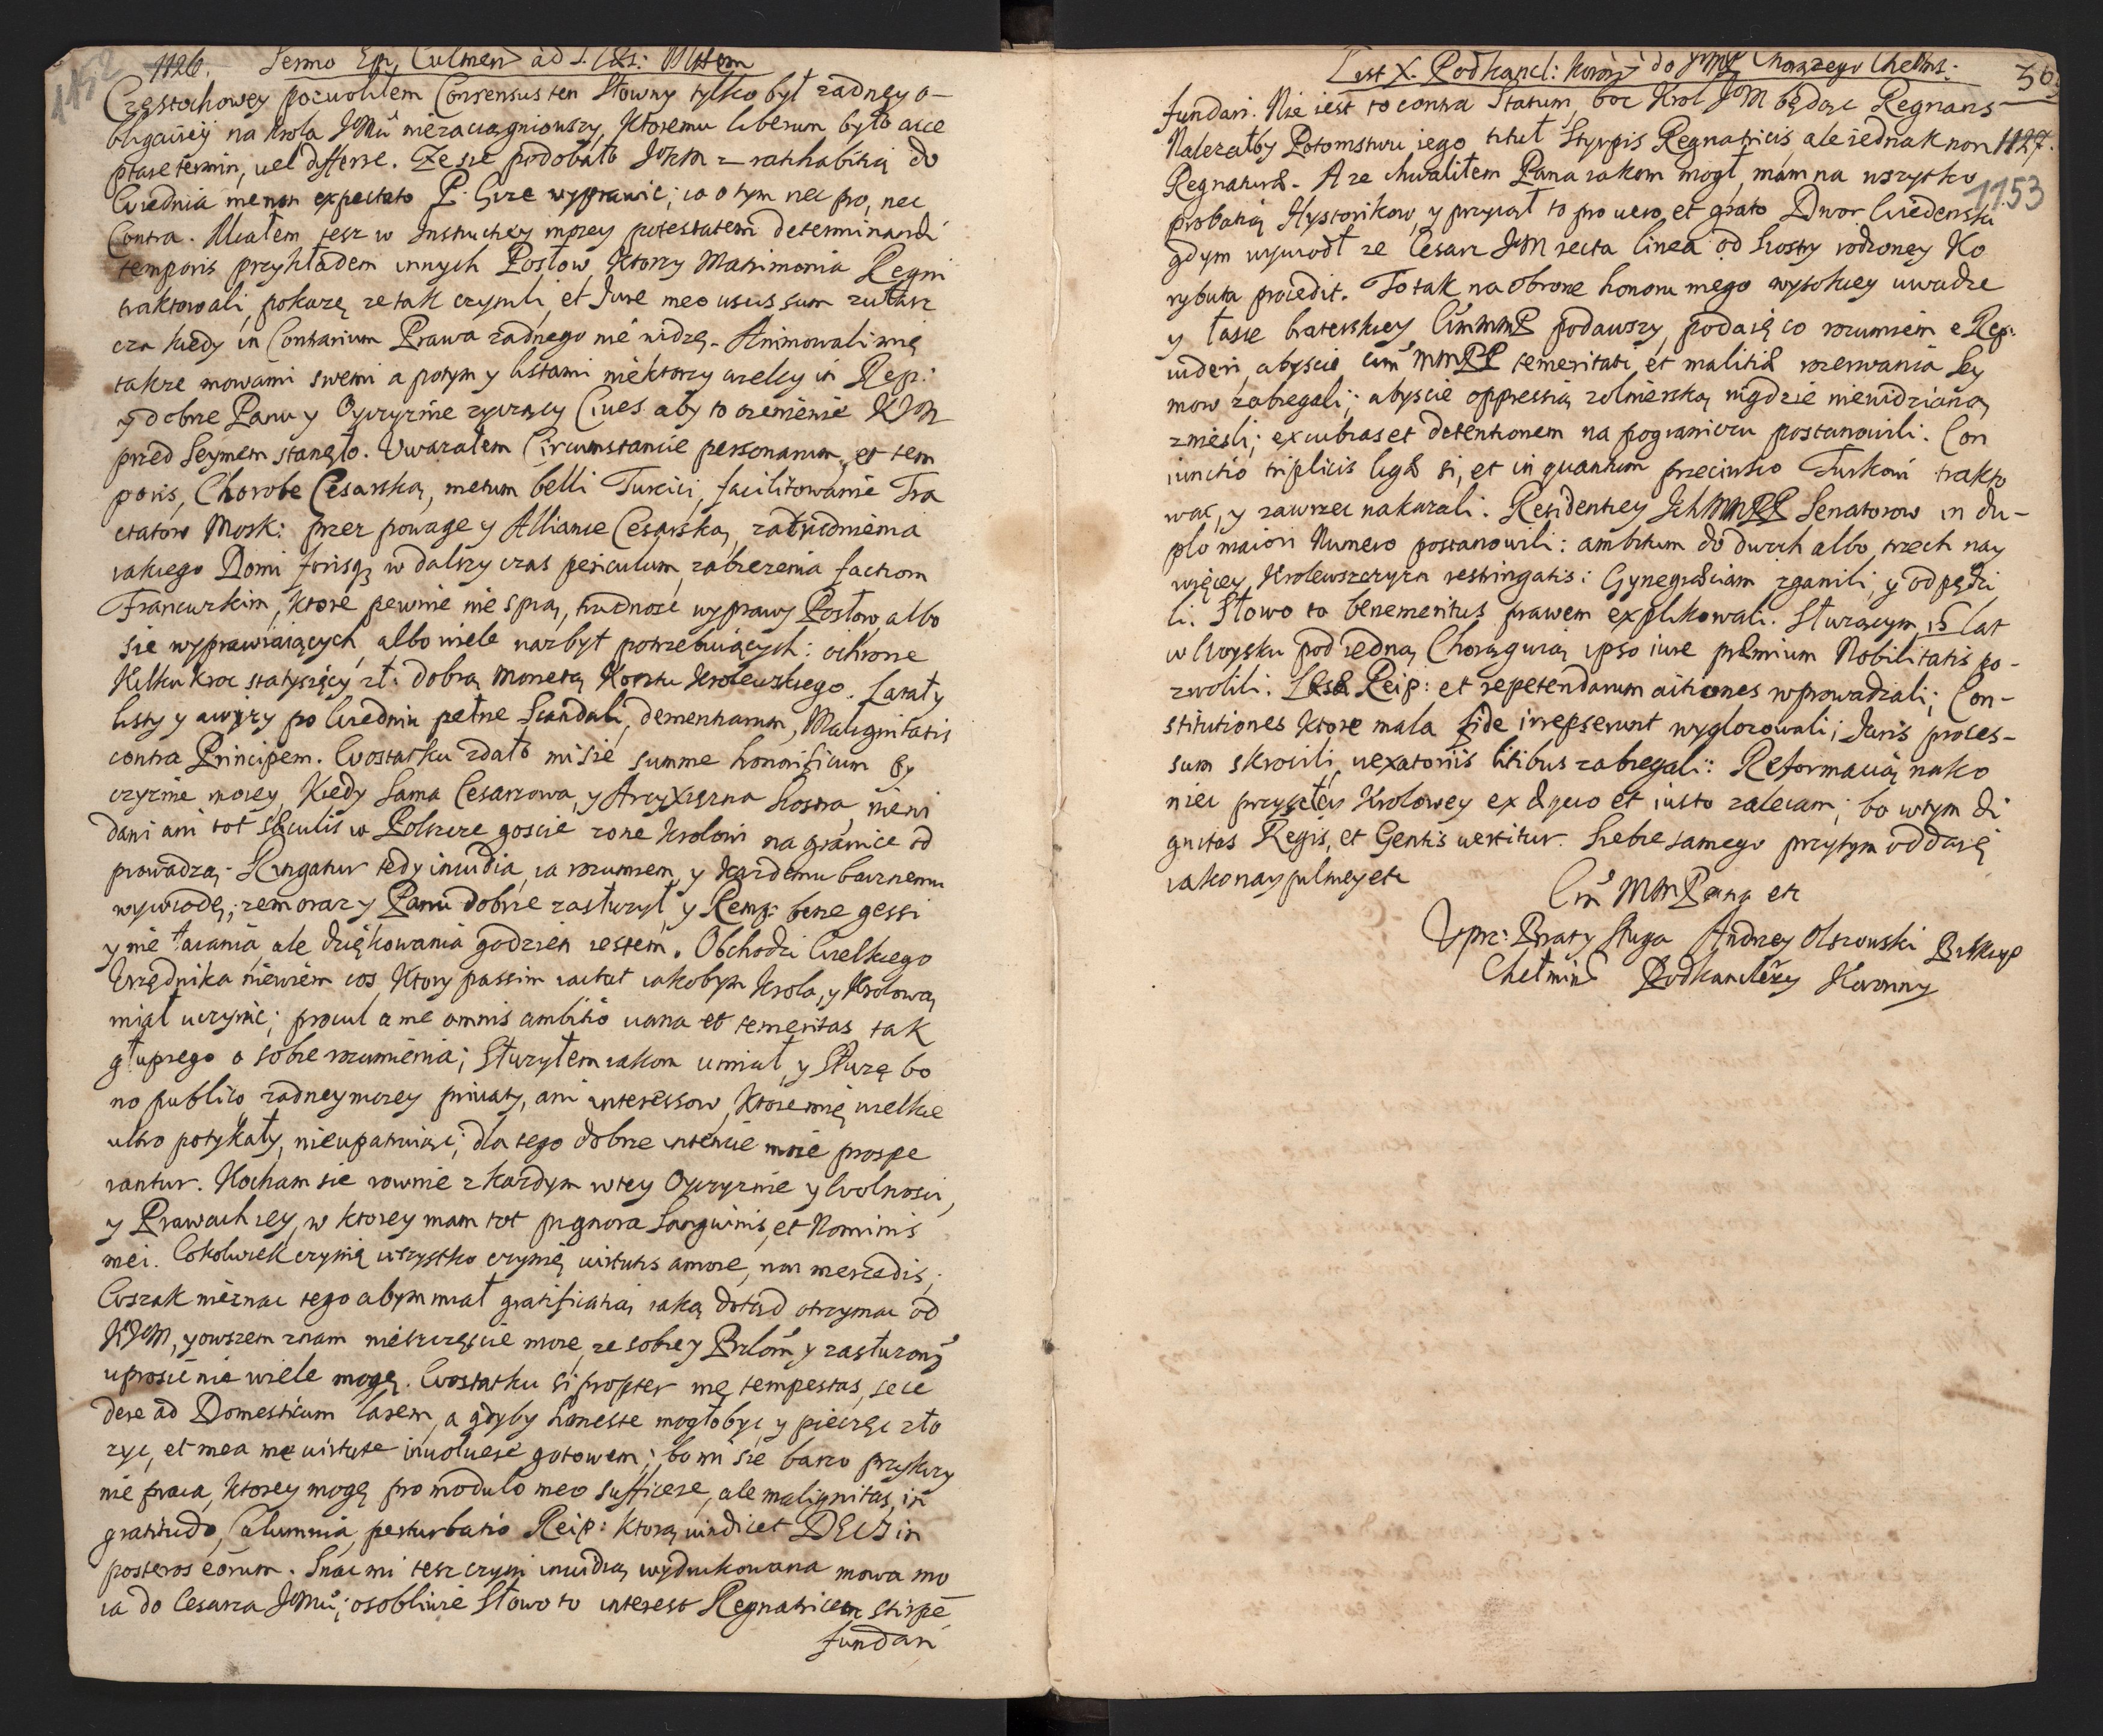 1126. Sermo Ep. Culmen ad S.
1152
Częstochowey pozwolilem Consensus ten Słowny tylko był zadney o-
bligaciiey na Krola JoMci niezaciągniowszy, Ktoremu liberum było acce
ptare termin, uel differre. Ze sie podobało z ratihabitią do
Wiednia me non expectato P. wyprawic; ia o tym nec pro, nec
Contra. Miałem tesz w Instructiey moiey potestatem determinandi
temporis przykładem innych Posłow, Ktorzy Matrimonia Regni
traktowali, pokazę ze tak czynili, et Jure meo usus sum zwłasz
cza kiedy in Contrarium Prawa zadnego nie widzę. Animowali mię
takze mowami swemi a potym y listami niektorzy wielcy in Rep:
y dobrze Panu y Oyczyznie zyczący Ciues aby to ozenienie KJM
przed Seymem stanęło. Uwazałem Circumstancie personarum, et tem
poris, Chorobe Cesarską, metum belli Turcici, facilitowanie Tra
ctatow Mosk: przez powage y Alliance Cesarską, zatrudnienia
iakiego Domi forisq; w dalszy czas periculum, zabiezenia factiom
Francuzkim, Ktore pewnie nie spią, trudnosc wyprawy Posłow, albo
sie wyprawiaiących, albo wiele nazbyt potrzebuiących: ochrone
Kilku kroc statysięcy zł: dobrą monetą Kosztu Krolewskiego. Latały
listy y awizy po Wiedniu pełne Scandali, dementiarum, Malignitatis
contra Principem. Wostatku zdało mi sie summe honorificum Oy
czyznie moiey, Kiedy Sama Cesarzowa, y Arcyxięzna Siostra, niewi
dani ani tot Sæculis w Polszcze goscie zone Krolowi na granice od
prowadzą. Ringatur tedy inuidia, ia rozumiem, y Kazdemu bacznemu
wywiodę, zem oraz y Panu dobrze zasłuzył, y Remp: bene gessi
y nie łaiania, ale dziękowania godzien iestem. Obchodzi Wielkiego
Urzędnika niewiem cos, Ktory passim iactat iakobym Krola, y Krolową
miał uczynic; procul a me omnis ambitio uana et temeritas tak
głupiego o sobie rozumienia; Słuzyłem iakom umiał, y Słuzę bo
no publico, zadney moiey priuaty, ani interessow, Ktore mię wielkie
ultro potykały, nieupatruiąc; dla tego dobrze intencie moie prospe
rantur. Kocham sie rownie z kazdym wtey Oyczyznie y Wolnosci,
y Prawach iey, w ktorey mam tot pignora Sanguinis, et Nominis
mei. Cokolwiek czynię wszystko czynię uirtutis amore, non mercedis;
Wszak nieznac tego abym miał gratificatią iaką dotąd otrzymac od
KJM, y owszem znam nieszczęscie moie, ze sobie y y zasłuzony
uprosic nie wiele mogę. Wostatku si propter me tempestas, sece
dere ad Domesticum Larem, a gdyby honeste mogło byc, y pieczęc zło
zyc, et mea me uirtute inuoluere gotowem; bo mi sie barzo przykrzy
nie praca, ktorey mogę pro modulo meo sufficere, ale malignitas, in
gratitudo, Calumnia, perturbatio Reip: Ktorą uindicet DEUS in
posteros eorum. Snac mi tesz czyni inuidią wydrukowana mowa mo
ia do Cesarza JoMci; osobliwie Słowo to interest Regnatricem stirpē
fundari
List X. Podkancl: Koron: do Chorązego Chełms:
36
fundari. Nie iest to contra Statum, boc Krol JM będąc Regnans
Nalezałby Potomstwu iego tituł Styrpis Regnatricis, ale iednak non
1127.
Regnaturæ. A ze chwaliłem Pana iakom mogł, mam na wszytko
1153
probatią Hystorikow, y przyiął to pro uero, et grato Dwor Wiedenski
gdym wywiodł ze Cesarz JM recta linea od Siostry rodzoney Ko
rybuta procedit. To tak na obrone honoru mego wysokiey uwadze
y łasce braterskiey podawszy, podaię co rozumiem e Rep:
uideri, abyscie temeritati, et malitiæ rozerwania Sey
mow zabiegali; abyscie oppressią zolnierską nigdzie niewidzianą
zniesli; excubias et detentionem na pograniczu postanowili. Con
iunctio triplicis ligæ si, et in quantum przeciwko Turkowi trakto
wac, y zawrzec nakazali. Residentiey Senatorow in du-
plo maiori Numero postanowili: ambitum do dwuch albo, trzech nay
więcey Krolewszczyzn restringatis: Gynegræciam zganili, y odpędzi
li. Słowo to benemeritus prawem explikowali. Słuzącym 15 lat
w Woysku pod iedną Chorągwią ipso iure præmium Nobilitatis po-
zwolili. Læsæ Reip: et repetendarum actiones wprowadzali; Con-
stitutiones Ktore mala fide irrepserunt wyglozowali; Juris proces-
sum skrocili, uexatoriis litibus zabiegali: Reformacią nako
niec przysięłey Krolowey ex æquo et iusto zalecam; bo wtym di
gnitas Regis, et Gentis uertitur. Siebie samego przytym oddaię
iako nay pilniey etc
Pana etc
Vprz: Braty Sługa Andrzey Olszowski Biskup
Chełmins Podkanclerzy Koronny